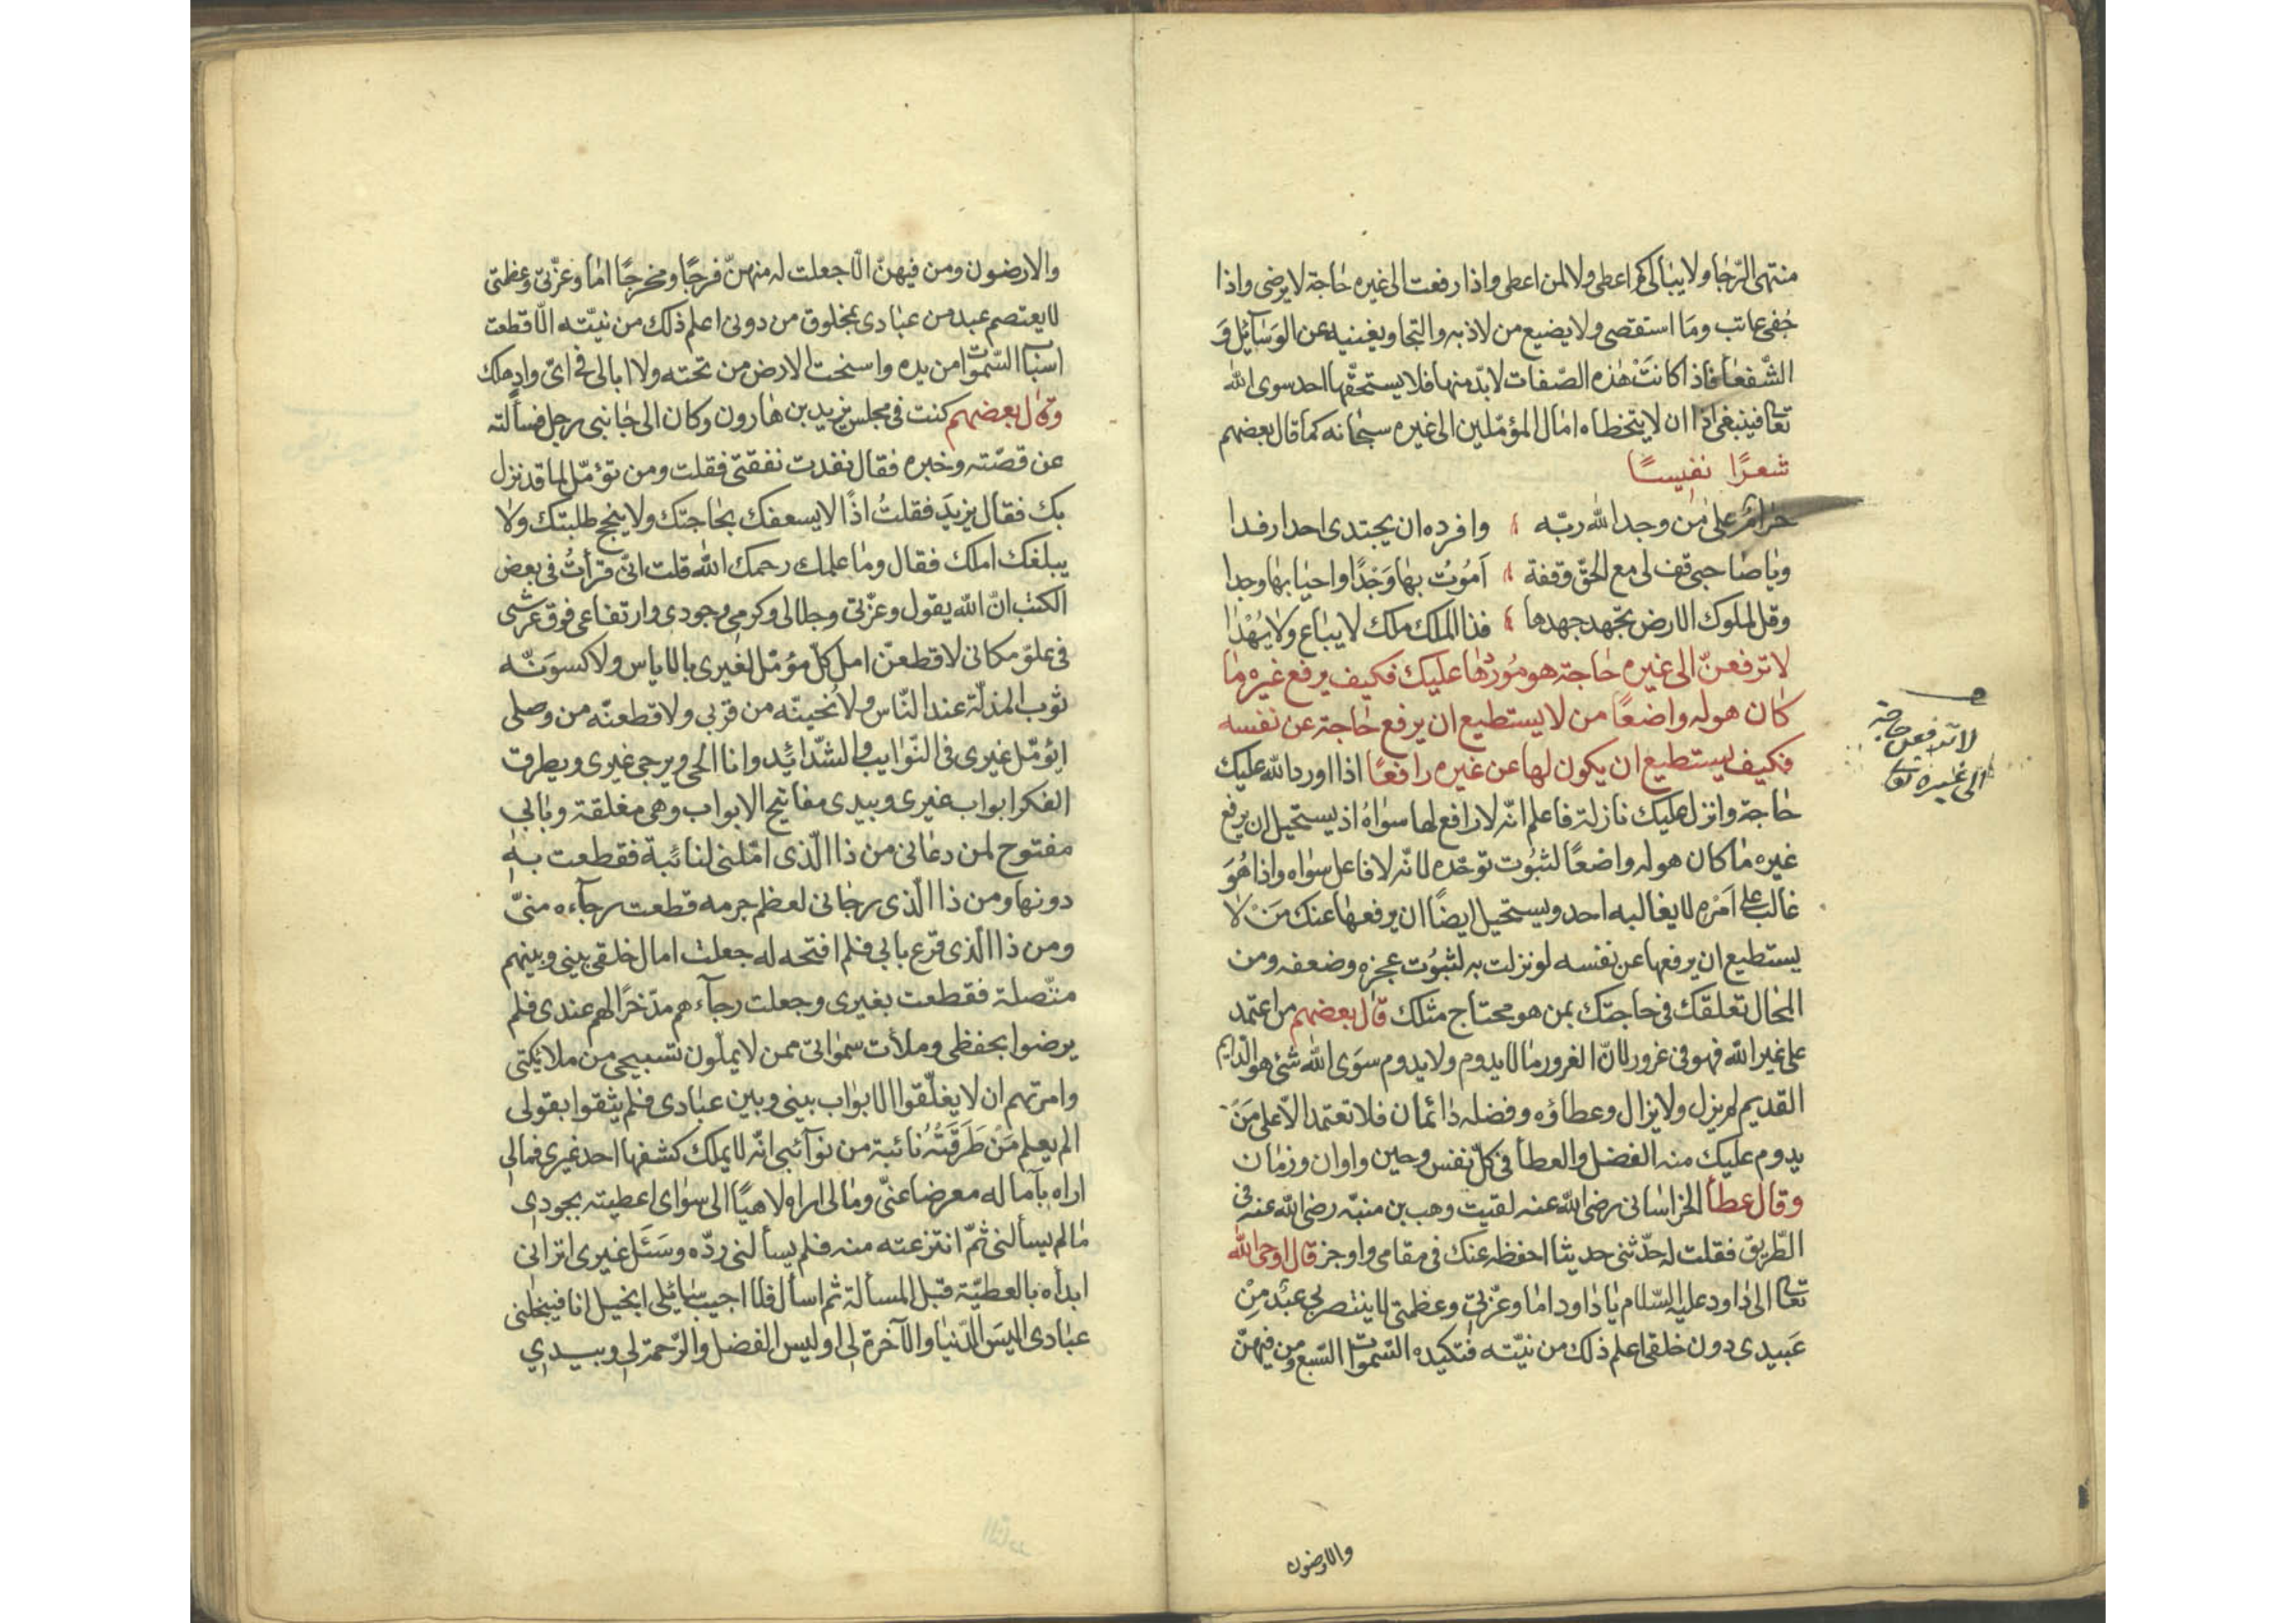 منتهى الرّجا ولا يبالى كم اعطى ولا لمن اعطى واذا رفعت الى غيره حاجة لا يرضى واذا
جُفى عاتب وما استقصى ولا يضيع من لاذ به والتجا ويغنيه عن الوسآئل وَ
الشّفعا فاذا كانَتْ هٰذه الصّفات لا بدّ منها فلا يستحقّها احد سوى الله
تعا فينبغى اذا ان لا يتخطاه امال المؤمّلين الى غيره سبحانه كما قال بعضهم
شعرًا نفيسًا
حرام على من وجد الله ربّه وافرده ان يجتدى احدا رفدا
ويا صاحبى قف لى مع الحقّ وقفة اَمُوُت بها وَجْدًا واحيا بها وجدا
وقل لملوك الارض تجهد جهدها فذا الملك ملك لا يباع ولا يُهْدا
لا ترفعنّ الى غيره حاجة هو مُوردُها عليك فكيف يرفع غيره ما
كان هو له واضعًا من لا يستطيع ان يرفع حاجة عن نفسه
فكيف يستطيع ان يكون لها عن غيره رافعًا اذا اورد الله عليك
حاجة وانزل عليك نازلة فاعلم انّه لا رافع لها سواهُ اذ يستحيل ان يرفع
غيره ما كان هو له واضعًا لثبُوت توحّده لانّه لا فاعل سواه واذا هُوَ
غالب على اَمْره لا يغالبه احد ويستحيل ايضًا ان يرفعها عنك مَنْ لا
يستطيع ان يرفعها عن نفسه لو نزلت به لثبُوت عجزه وضعفه ومن
المحال تعلقك فى حاجتك بمن هو محتاج مثلك قال بعضهم من اعتمد
على غير الله فهو فى غرور لانّ الغرور ما لا يدوم ولا يدوم سوَى الله شئ هو الدّايم
القديم لم يزل ولا يزال وعطاؤه وفضله دائمان فلا تعتمد الاّ على مَنَ
يدوم عليك منه الفضل والعطأ فى كلّ نفس وحين واوان وزمان
وقال عطأ الخراسانى رضى الله عنه لقيت وهب بن منبّه رضى الله عنه فى
الطّريق فقلت له حدّثنى حديثا احفظه عنك فى مقامى واوجز قال اوحى الله
تعا الى داود عليه السّلام يا داود اما وعزّتى وعظمتى لا ينتصر بى عبْد مِنْ
عَبيدى دون خلقى اعلم ذلك من نيّته فتكيده السّموات السّبع ومن فيهنّ
لا ترفعن حاجة
الى غيره تعا
والارضون
والارضون ومن فيهنّ الّا جعلت له منهنّ فرجًا ومخرجًا اما وعزّتى وعظمتى
لا يعتصم عبد من عبادى بمخلوق من دونى اعلم ذلك من نيّته الّا قطعت
اسبآ السّموات من يده واسخت الارض من تحته ولا ابالى فى اىّ وادٍ هلك
وقال بعضهم كنت فى مجلس يزيد بن هارون وكان الى جانبى رجل فسألته
عن قصّته وخبره فقال نفدت نفقتى فقلت ومن تؤمّل لما قد نزل
بك فقال يزيدَ فقلتُ اذًا لا يسعفك بحاجتك ولا ينجح طلبتك ولا
يبلغك املك فقال وما علمك رحمك الله قلت انّى قرأتُ فى بعض
الكتب انّ الله يقول وعزّتى وجلالى وكرمى وجودى وارتفاعى فوق عرشى
فى علوّ مكانى لاقطعنّ امل كلّ مؤمّل لغيرى بالاياس ولاكسوَنّه
ثوب المذلّة عند النّاس ولاُنحينّه من قربى ولاقطعنّه من وصلى
ايُؤمّل غيرى فى النّوايب والشّدائد وانا الحى ويرجى غيرى ويطرق
الفكر ابواب غيرى وبيدى مفاتيح الابواب وهى مغلقة وبابى
مفتوح لمن دعانى من ذا الّذى امّلنى لنائبة فقطعت به
دونها ومن ذا الّذى رجانى لعظم جرمه قطعت رجآءه منىّ
ومن ذا الّذى قرع بابى فلم افتحه له جعلت امال خلقى بينى وبينهم
متّصلة فقطعت بغيرى وجعلت رجآءهم مدّخرًا لهم عندى فلم
يرضوا بحفظى وملأت سمواتى ممن لا يملّون تسبيحى من ملائكتى
وامرتهم ان لا يغلّقوا الابواب بينى وبين عبادى فلم يثقوا بقولى
الم يعلم مَنْ طَرَقَتْهُ نائبة من نوآئبى انّه لا يملك كشفها احد غيرى فمالى
اراه بآماله معرضا عنّى ومالى اراه لاهيًا الى سواى اعطيته بجودى
ما لم يسألنى ثمّ انتزعته منه فلم يسألنى ردّه وسَئَل غيرى اترانى
ابدأه بالعطيّة قبْل المسألة ثم اسأل فلا اجيب سائلى ابخيل انا فيبخّلنى
عبادى اليسَ الدّنيا والآخرة لى اوليس الفضل والرّحمة لى وبيدي